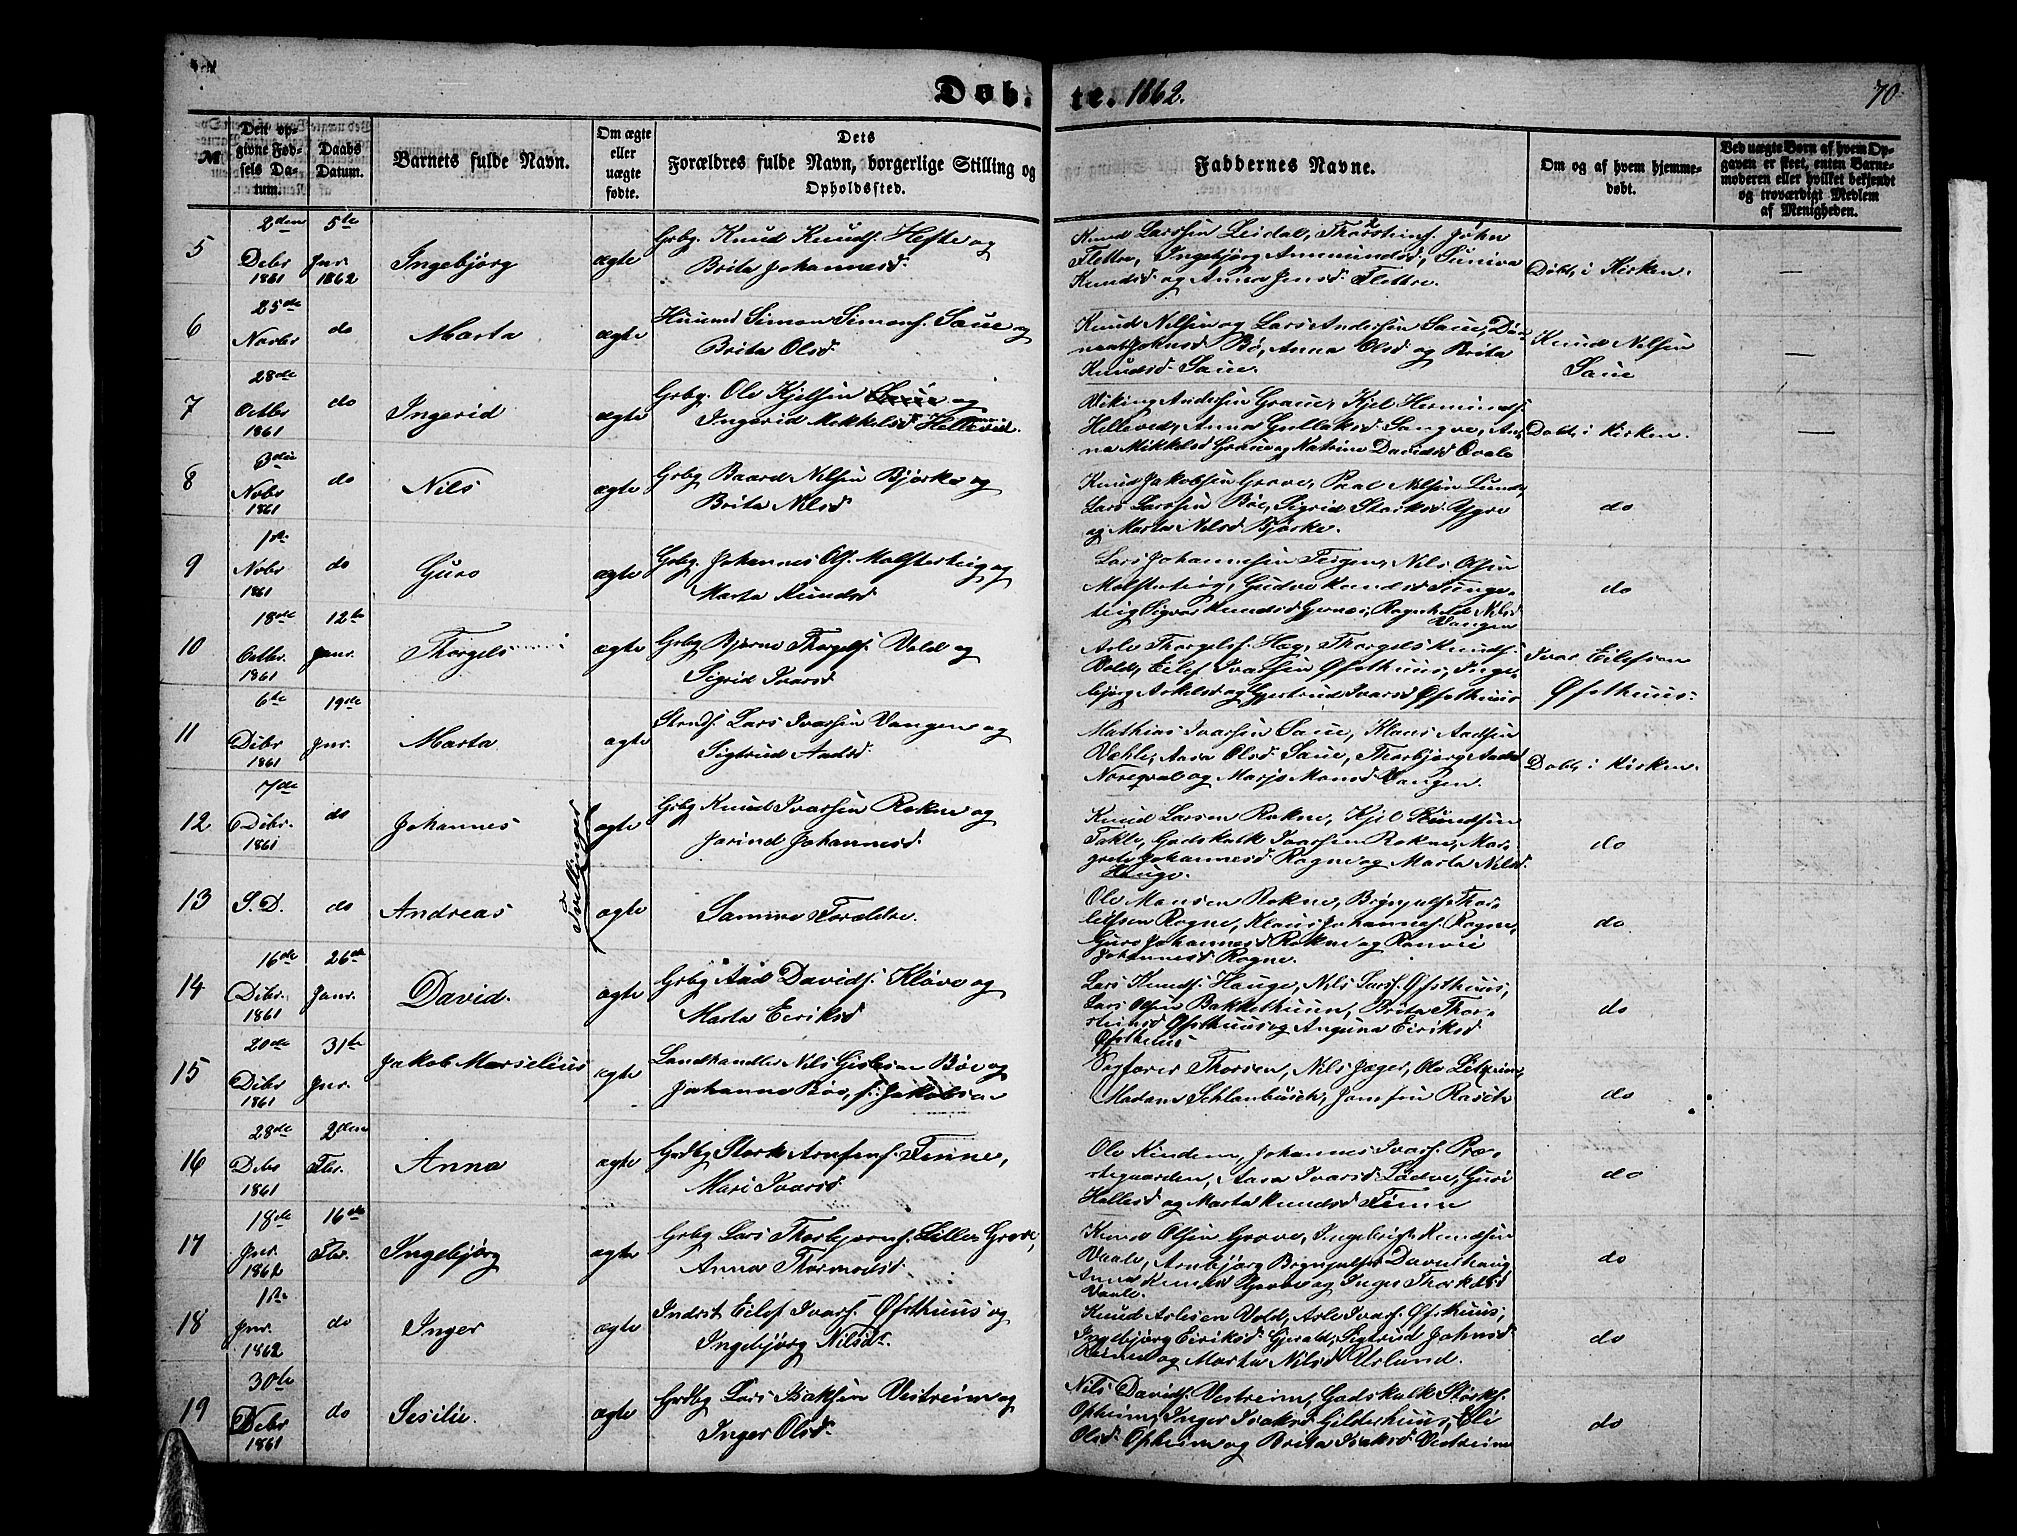 Døb-te. 1862.
70
№
Den op-
givne Fød-
sels Da-
tum.
Daabs
Datum.
Barnets fulde Navn.
Om ægte
eller
uægte
fødte.
Dets
Forældres fulde Navn, borgerlige Stilling og
Opholdssted.
Faddernes Navne.
Om og af hvem hjemme-
døbt.
Ved uægte Børn af hvem Op-
gaven er skeet, enten Barne-
moderen eller hvilket bekjendt
og troværdigt Medlem
af Menigheden.
5
2den
Debr
1861
5te
Jnr.
1862
Ingebjørg
ægte
Grbg. Knud Knuds. Hefte og
Brita Johannesd.
Knud Larssen Leidal, Thorsteins. John
Flettre, Ingebjørg Ammundsd, Suniva
Knudsd og Anna Jensd Flettre.
Døbt i Kirken.
6
25de
Novbr
do
Marta
ægte
Huusmd Simon Simons. Saue og
Brita Olsd
Knud Nilsen og Lars Andersen Saue,
Johnsd Bø, Anna Olsd og Brita
Knudsd Saue.
Knud Nilsen
Saue
7
28de
Octbr
1861
do
Ingerid
ægte
Grbg. Ole Kjelsen og
Ingerid Mikkelsd Hellevid.
Viking Andersen Graue, Kjel Hermunds.
Helleved, Anna Gulleksd Sangve, An-
na Mikkelsd Graue og Katrine Davidsd Qvale
Døbt i Kirken.
8
3die
Nobr
1861
do
Nils
ægte
Grbg Baard Nilsen Bjørke og
Brita Nilsd
Knud Jakobsen Grove, Paal Nilsen Lund,
Lars Larssen Bøe, Sigrid Storksd Ygre
og Marta Nilsd Bjørke.
do
9
1ste
Nobr
1861
do
Guro
ægte
Grbg. Johannes Ols. Molsterteig og
Marta Knudsd
Lars Johannesen Teigen, Nils Olsen
Molsterteig, Gudve Knudsd
teig Sigvor Knudsd Ragnhild Nilsd
Vangen
do
10
18de
Octbr.
1861
12te
Janr.
Thorgels
ægte
Grbg Bjørne Thorgels. Vold og
Sigrid Ivarsd
Arle Thorgels. Hæg, Thorgels Knuds.
Vold, Eilef Ivarssen Øfsthuus, Inge-
bjørg Arlesd og Gjertrud Ivarsd Øfsthuus
Ivar Eilefsen
Øfsthuus.
11
6te
Debr
1861
19de
Jnr.
Marta
ægte
Strds. Lars Ivarssen Vangen og
Sigtrud Aadsd
Mathias Ivarssen Saue, Klaus Aadsen
Væhle, Aasa Olsd Saue, Thorbjørg Aadsd
Noreqval og Marjo Monsd Vangen.
Døbt i Kirken.
12
7de
Debr.
1861
do
Johannes
ægte
Grbg Knud Ivarssen Rokne og
Jorind Johannesd
Knud Larsen Rokne, Kjel Knudsen
Takle, Godskalk Ivarssen Rokne, Mar-
grete Johannesd Rogne og Marta Nilsd
Hauge.
do
Tvillinger
13
S. D.
do
Andreas
ægte
Samme Forældre.
Ole Monsen Rokne, Brynjulf Thor-
leifsen Rogne, Klaus Johannes. Rogne,
Guro Johannesd Rokne og Ranvei
Johannesd Rogne.
do
14
16de
Debr.
1861
26de
Janr.
David.
ægte
Grbg Aad Davids. Kløve og
Marta Eiriksd
Lars Knuds. Hauge, Nils Lars. Øfsthuus,
Lars Olsen Bakkethuun, Brita Thor-
steinsd Øfsthuus og Anguna Eiriksd
Øfsthuus
do
15
20de
Debr
1861
31te
Jnr.
Jakob Marselius
ægte
Landhandler Nils Gjelsen Bøe og
Johanne Bøe, f. Jakobsen
Sagfører Thorsen, Nils Jæger, Ole Litzeim,
Madam Schlanbusch, Jomfru Rasch
do
16
28de
Debr
1861
2den
Fbr.
Anna
ægte
Grdbg Stork Arnfins. Finne,
Mari Ivarsd.
Ole Kindem, Johannes Ivars. Præ-
stegaarden, Aasa Ivarsd Lødve, Guri
Hallesd og Marta Knudsd Finne
do
17
18de
Jnr.
1862
16de
Fbr.
Ingebjørg
ægte
Grbg Lars Thorbjørns. Lille Grove,
Anna Thormodsd.
Knud Olsen Grove, Ingebrigt Knudsen
Vaale, Arnbjørg Brynjulfsd Daveshaug
Anna Knudsd og Inger Thorkelsd
Vaale.
do
18
1ste
Jnr.
1862
do
Inger
ægte
Indrst Eilef Ivars. Øfsthuus og
Ingebjørg Nilsdr.
Knud Arlesen Vold, Arle Ivars. Øfsthuus,
Ingebjørg Eiriksd Gjerald, Sigtrud Johnsd
og Marta Nilsd Urlund.
do
19
30te
Debr
1861
do
Sesilie.
ægte
Grdbg Lars Isaksen Vestreim og
Inger Olsd.
Nils Davids. Vestreim, Godskalk Storks.
Opheim, Inger Isaksd Gilderhuus, Eli
Olsd. Opheim og Brita Isaksd Vestreim
do